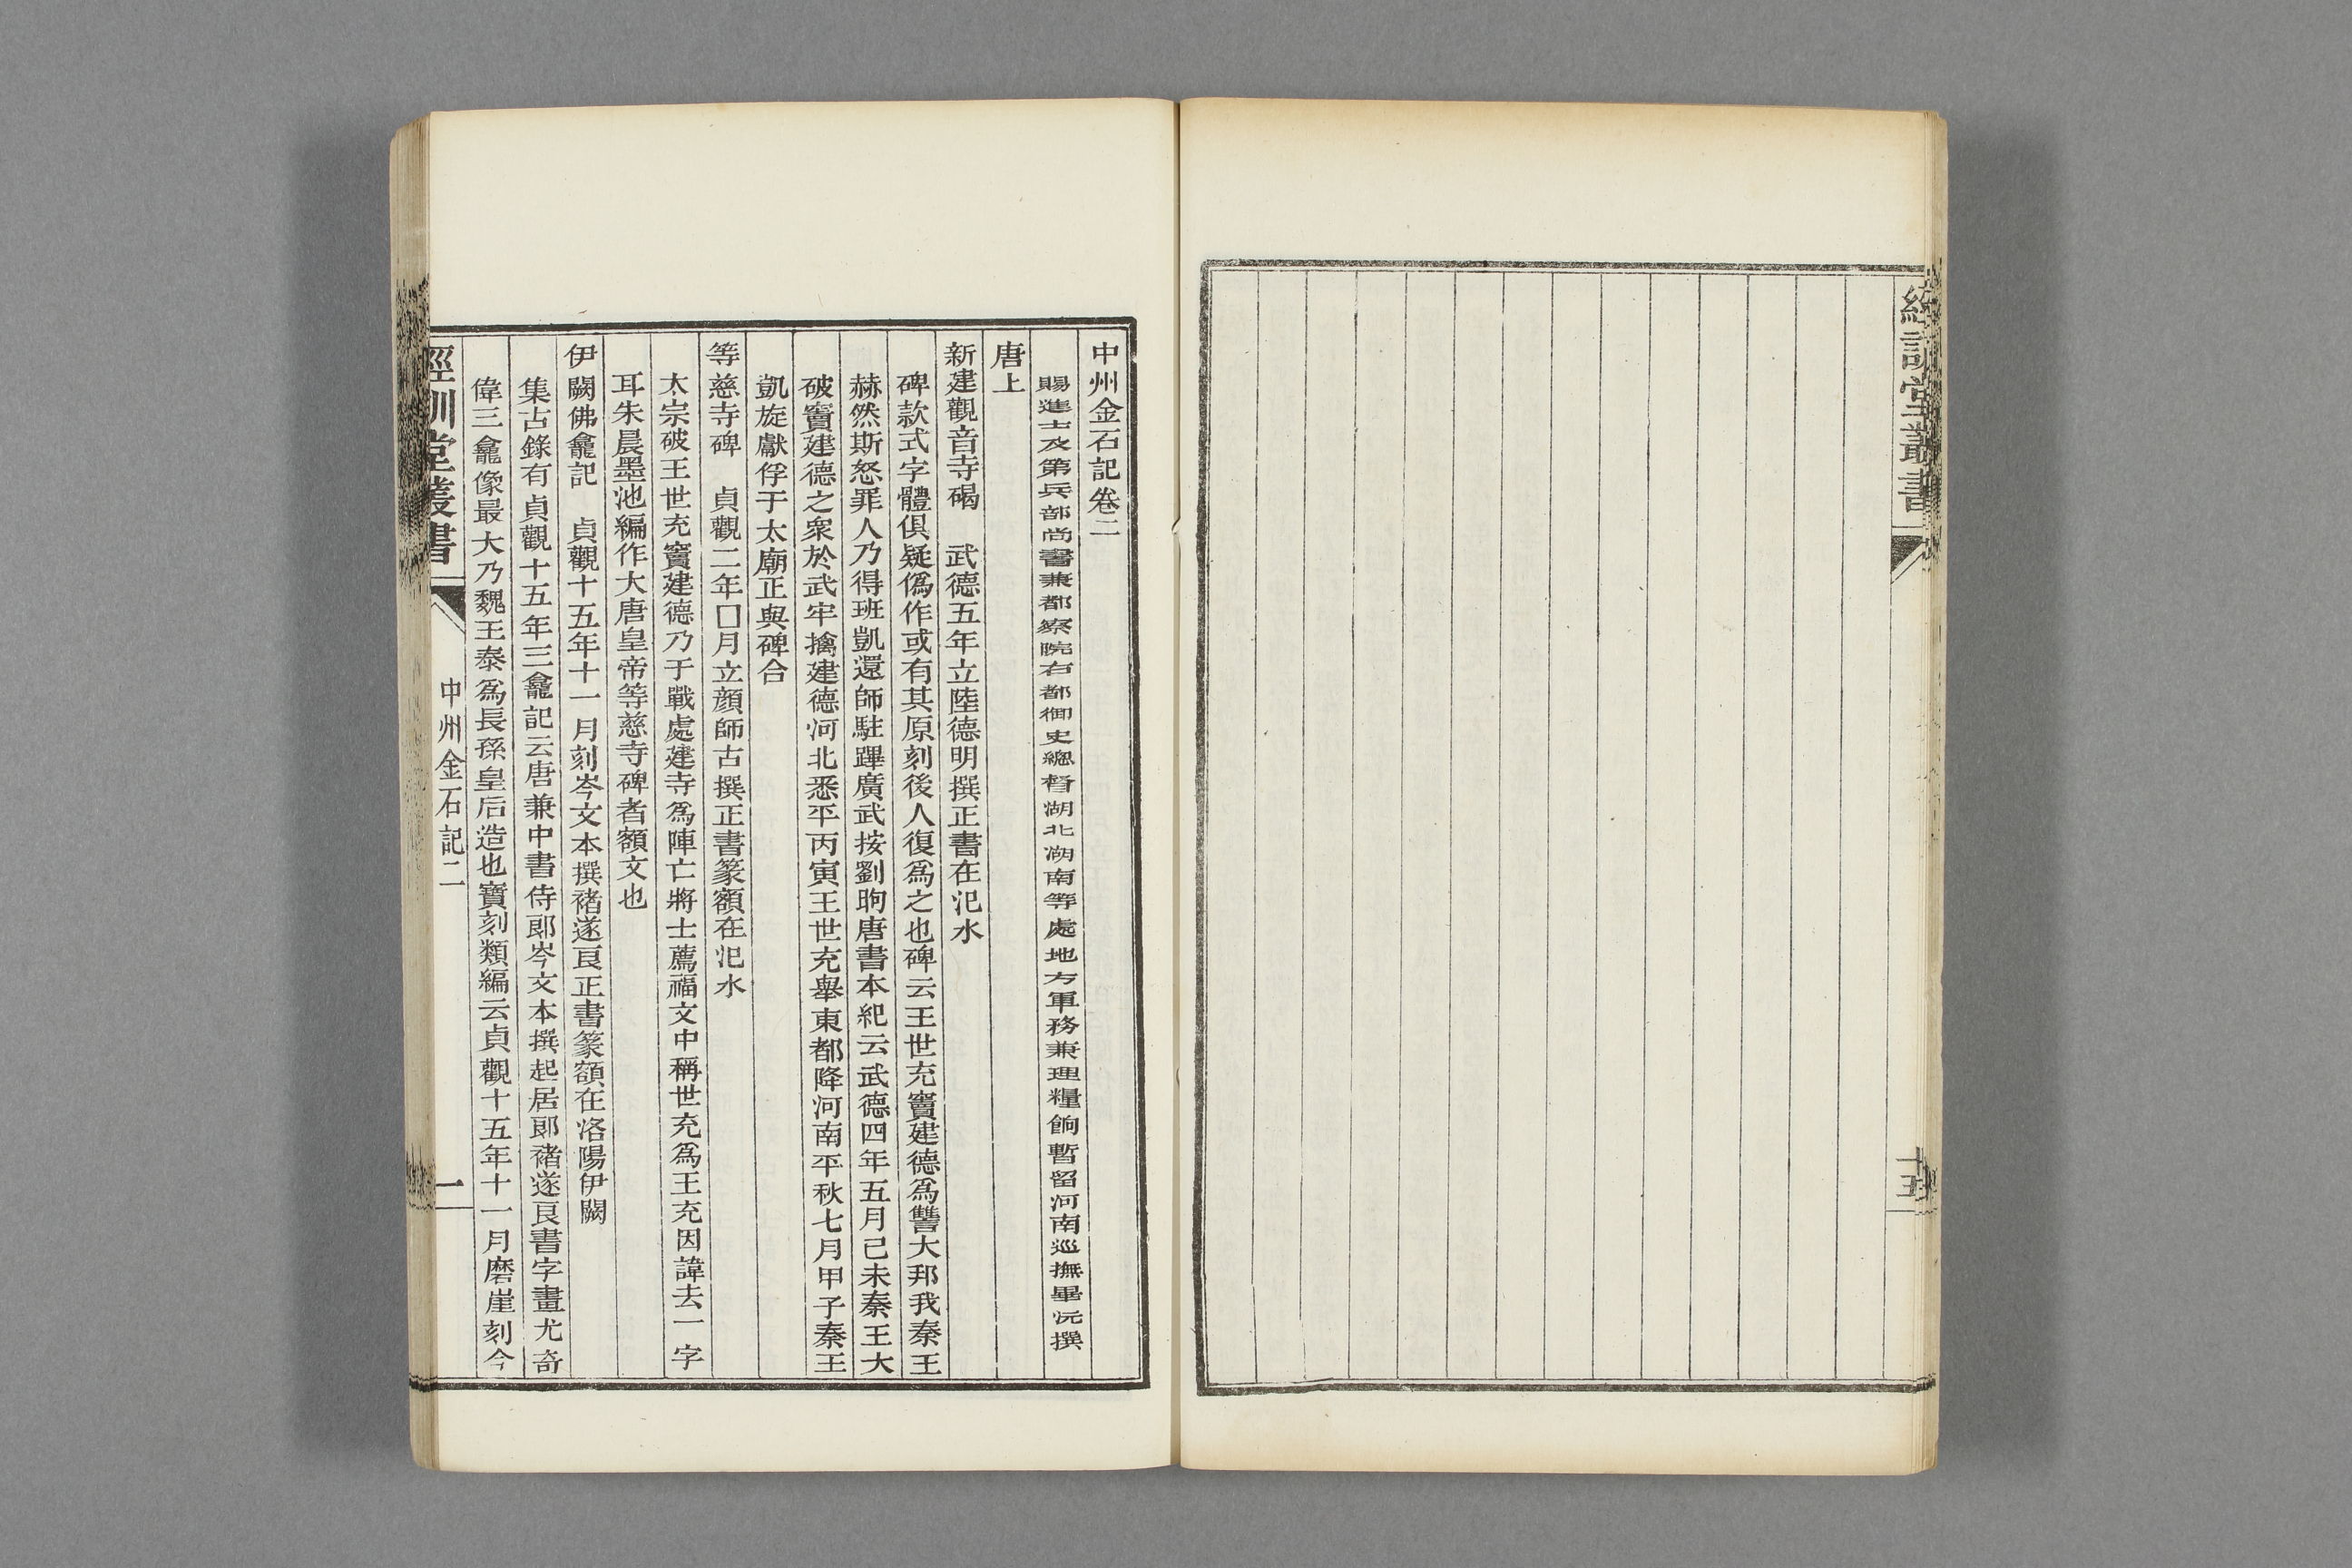 經訓堂叢書
十五
中州金石記卷二
賜進士及第兵部尚書兼都察院右都御史總督湖北湖南等處地方軍務兼理糧餉暫留河南巡撫畢沅撰
唐上
新建觀音寺碣　武德五年立陸德明撰正書在汜水
碑款式字體俱疑僞作或有其原刻後人復爲之也碑云王世充竇建德爲讐大邦我秦王
赫然斯怒罪人乃得班凱還師駐蹕廣武按劉昫唐書本紀云武德四年五月己未秦王大
破竇建德之衆於武牢擒建德河北悉平丙寅王世充舉東都降河南平秋七月甲子秦王
凱旋獻俘于太廟正與碑合
等慈寺碑　貞觀二年囗月立顔師古撰正書篆額在汜水
太宗破王世充竇建德乃于戰處建寺爲陣亡將士薦福文中稱世充爲王充因諱去一字
耳朱晨墨池編作大唐皇帝等慈寺碑者額文也
伊闕佛龕記　貞觀十五年十一月刻岑文本撰褚遂良正書篆額在洛陽伊闕
集古錄有貞觀十五年三龕記云唐兼中書侍郎岑文本撰起居郎褚遂良書字畫尤奇
偉三龕像最大乃魏王泰爲長孫皇后造也寶刻類編云貞觀十五年十一月磨崖刻今
經訓堂叢書
中州金石記二
一